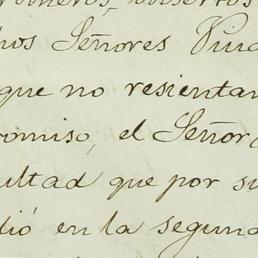 hos Señores Viu
que no resientan
romiso, el Señor
ultad que por su
dió en la segund